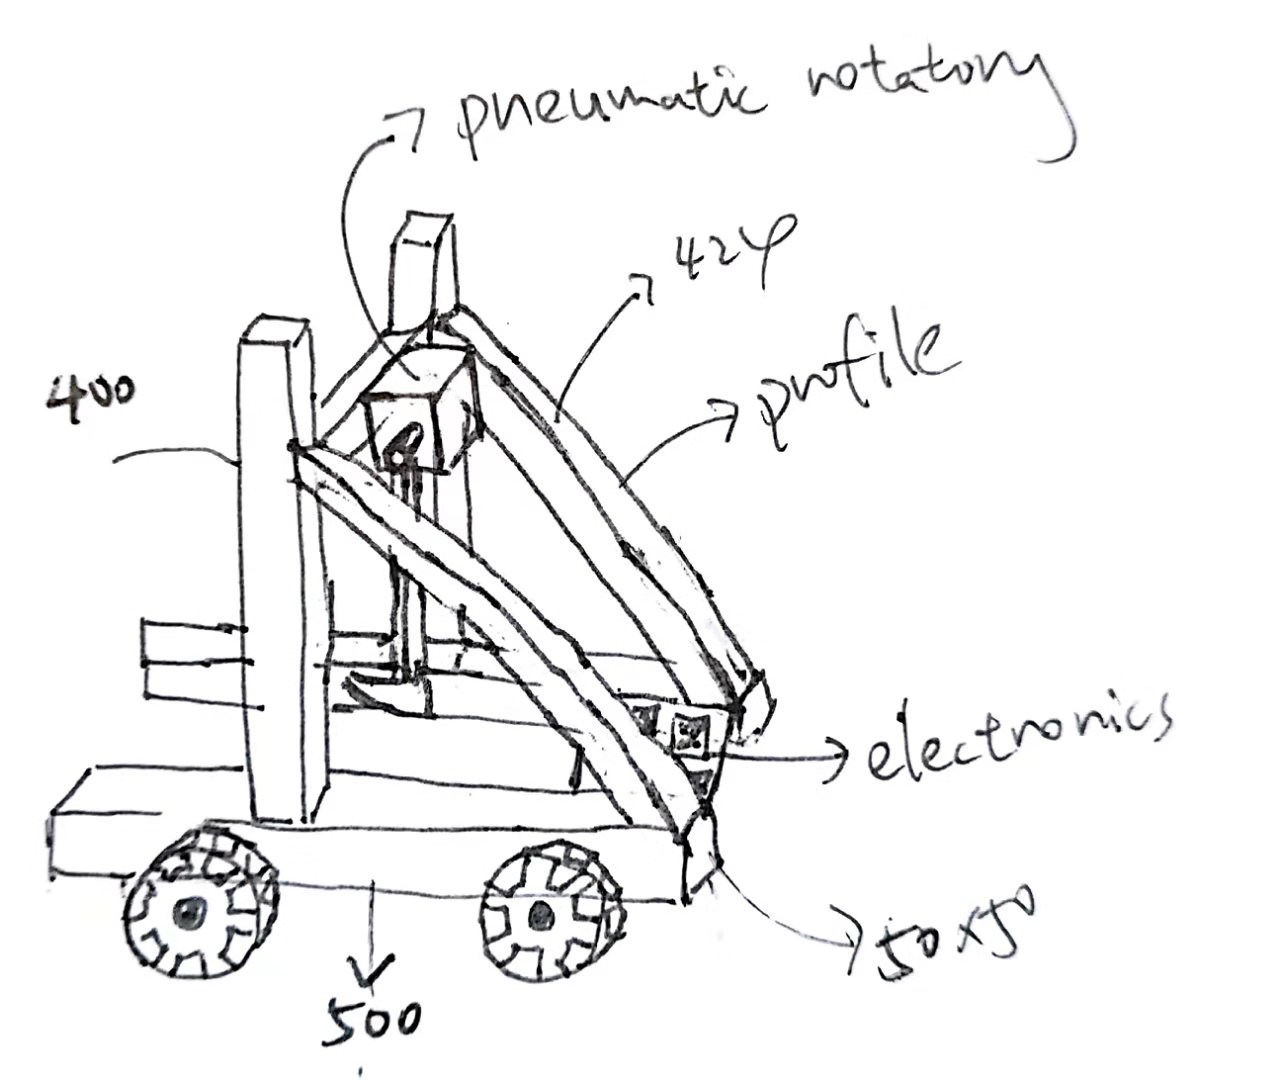 pneumatic rotatory
42φ
profile
400
electronics
50x50
500